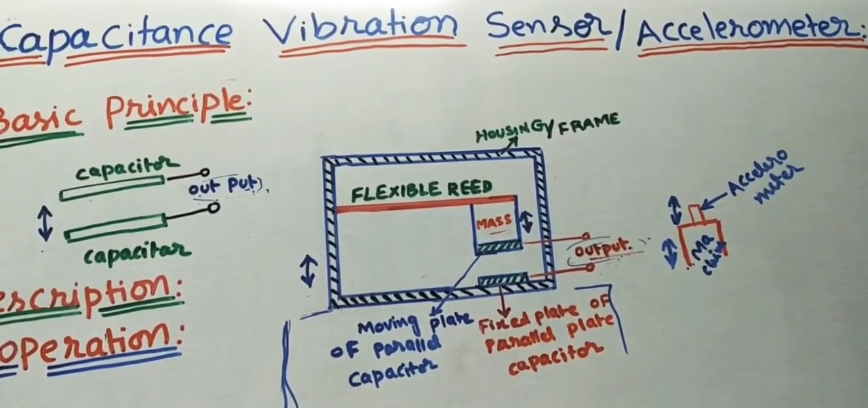 Capacitance Vibration Sensor/Accelerometer:
Basic Principle:
capacitor
out put).
capacitar
escription:
Operation:
HOUSING/FRAME
FLEXIBLE REED
MASS
output.
Moving plate
OF Parallel
Capacitor
Fixed plate OF
Parallel Plate
capacitor
Accelero
meter
Ma
chin